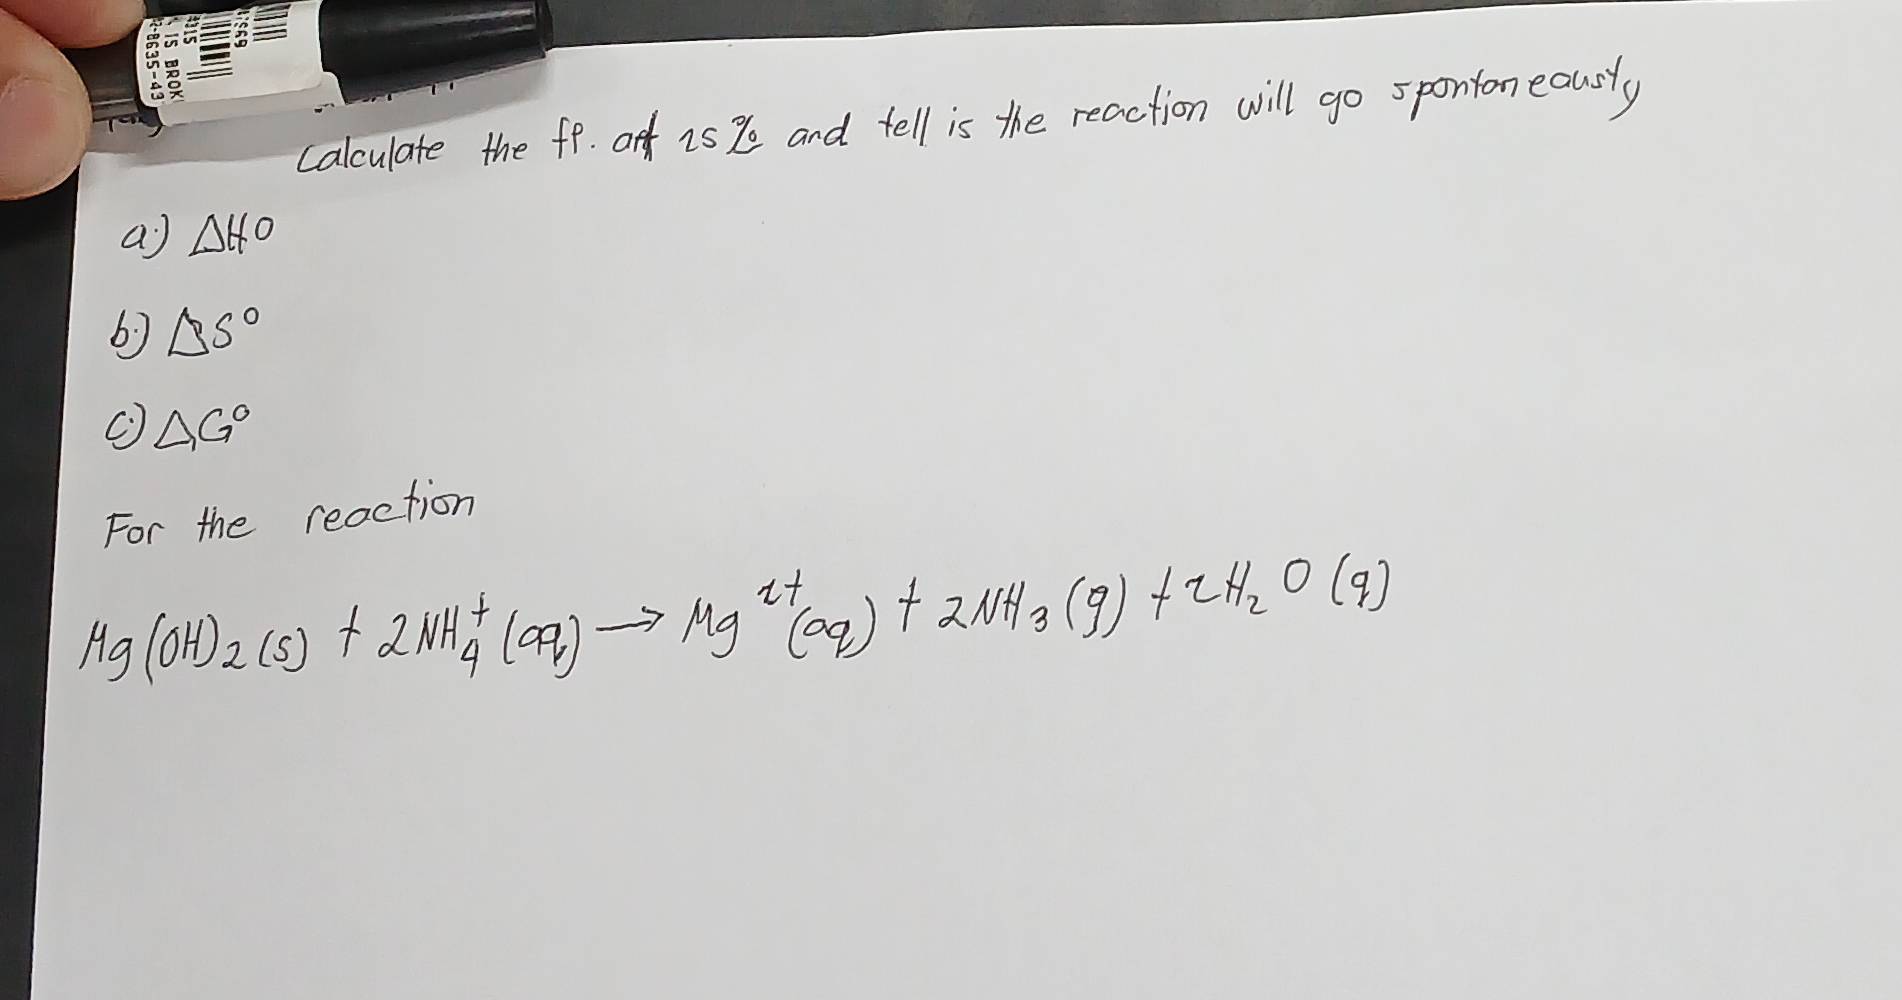 7669
8315
4 IS BROK
2-8635-43
Calculate the fp. at 25% and tell is the reaction will go spontaneausty
a.) ΔHO
b.) ΔS°
c.) ΔG°
For the reaction
Mg(OH)₂(s) + 2NH₄⁺(aq) → Mg²⁺(aq) + 2NH₃(g) + 2H₂O(q)